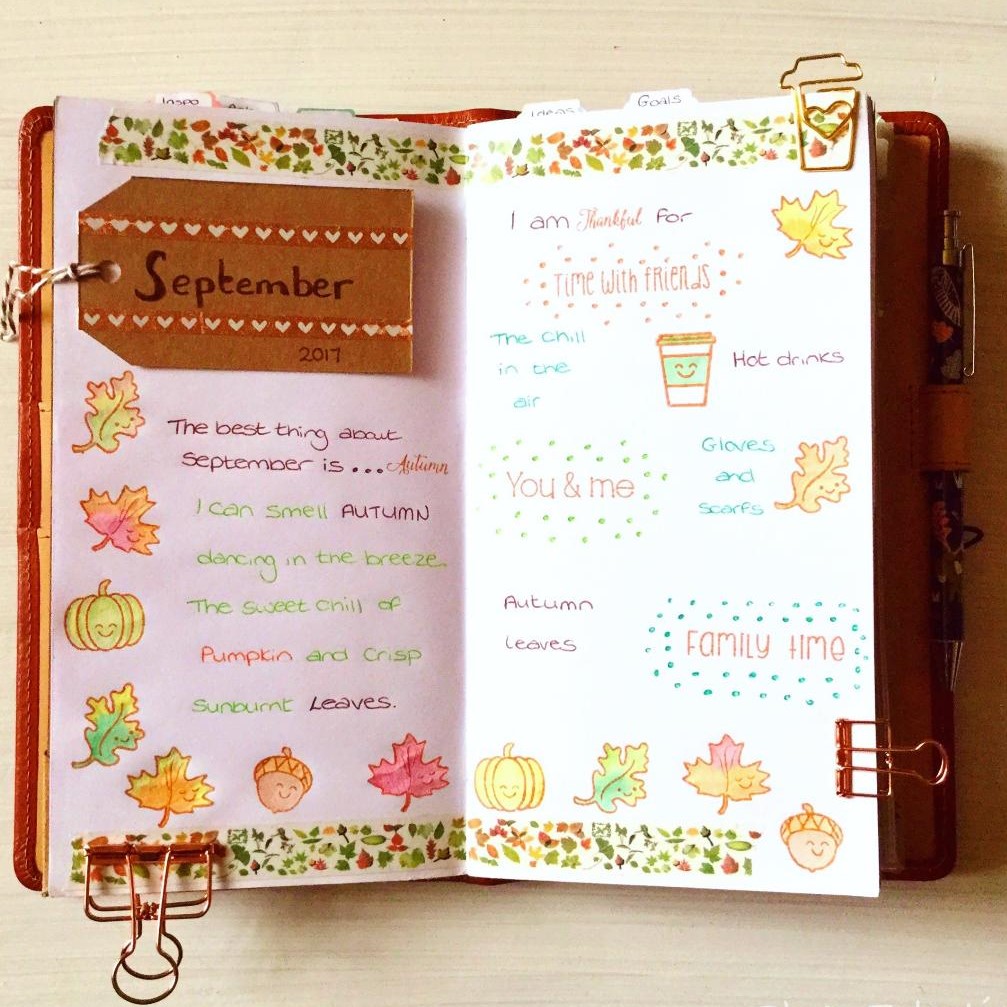 Inspo
Ideas
Goals
September
2017
The best thing about
September is ... Autumn
I can smell AUTUMN
dancing in the breeze,
The sweet chill of
Pumpkin and Crisp
sunburnt Leaves.
I am Thankful for
Time with friends
The Chill
in the
air
Hot drinks
You & me
Gloves
and
scarfs
Autumn
leaves
Family time